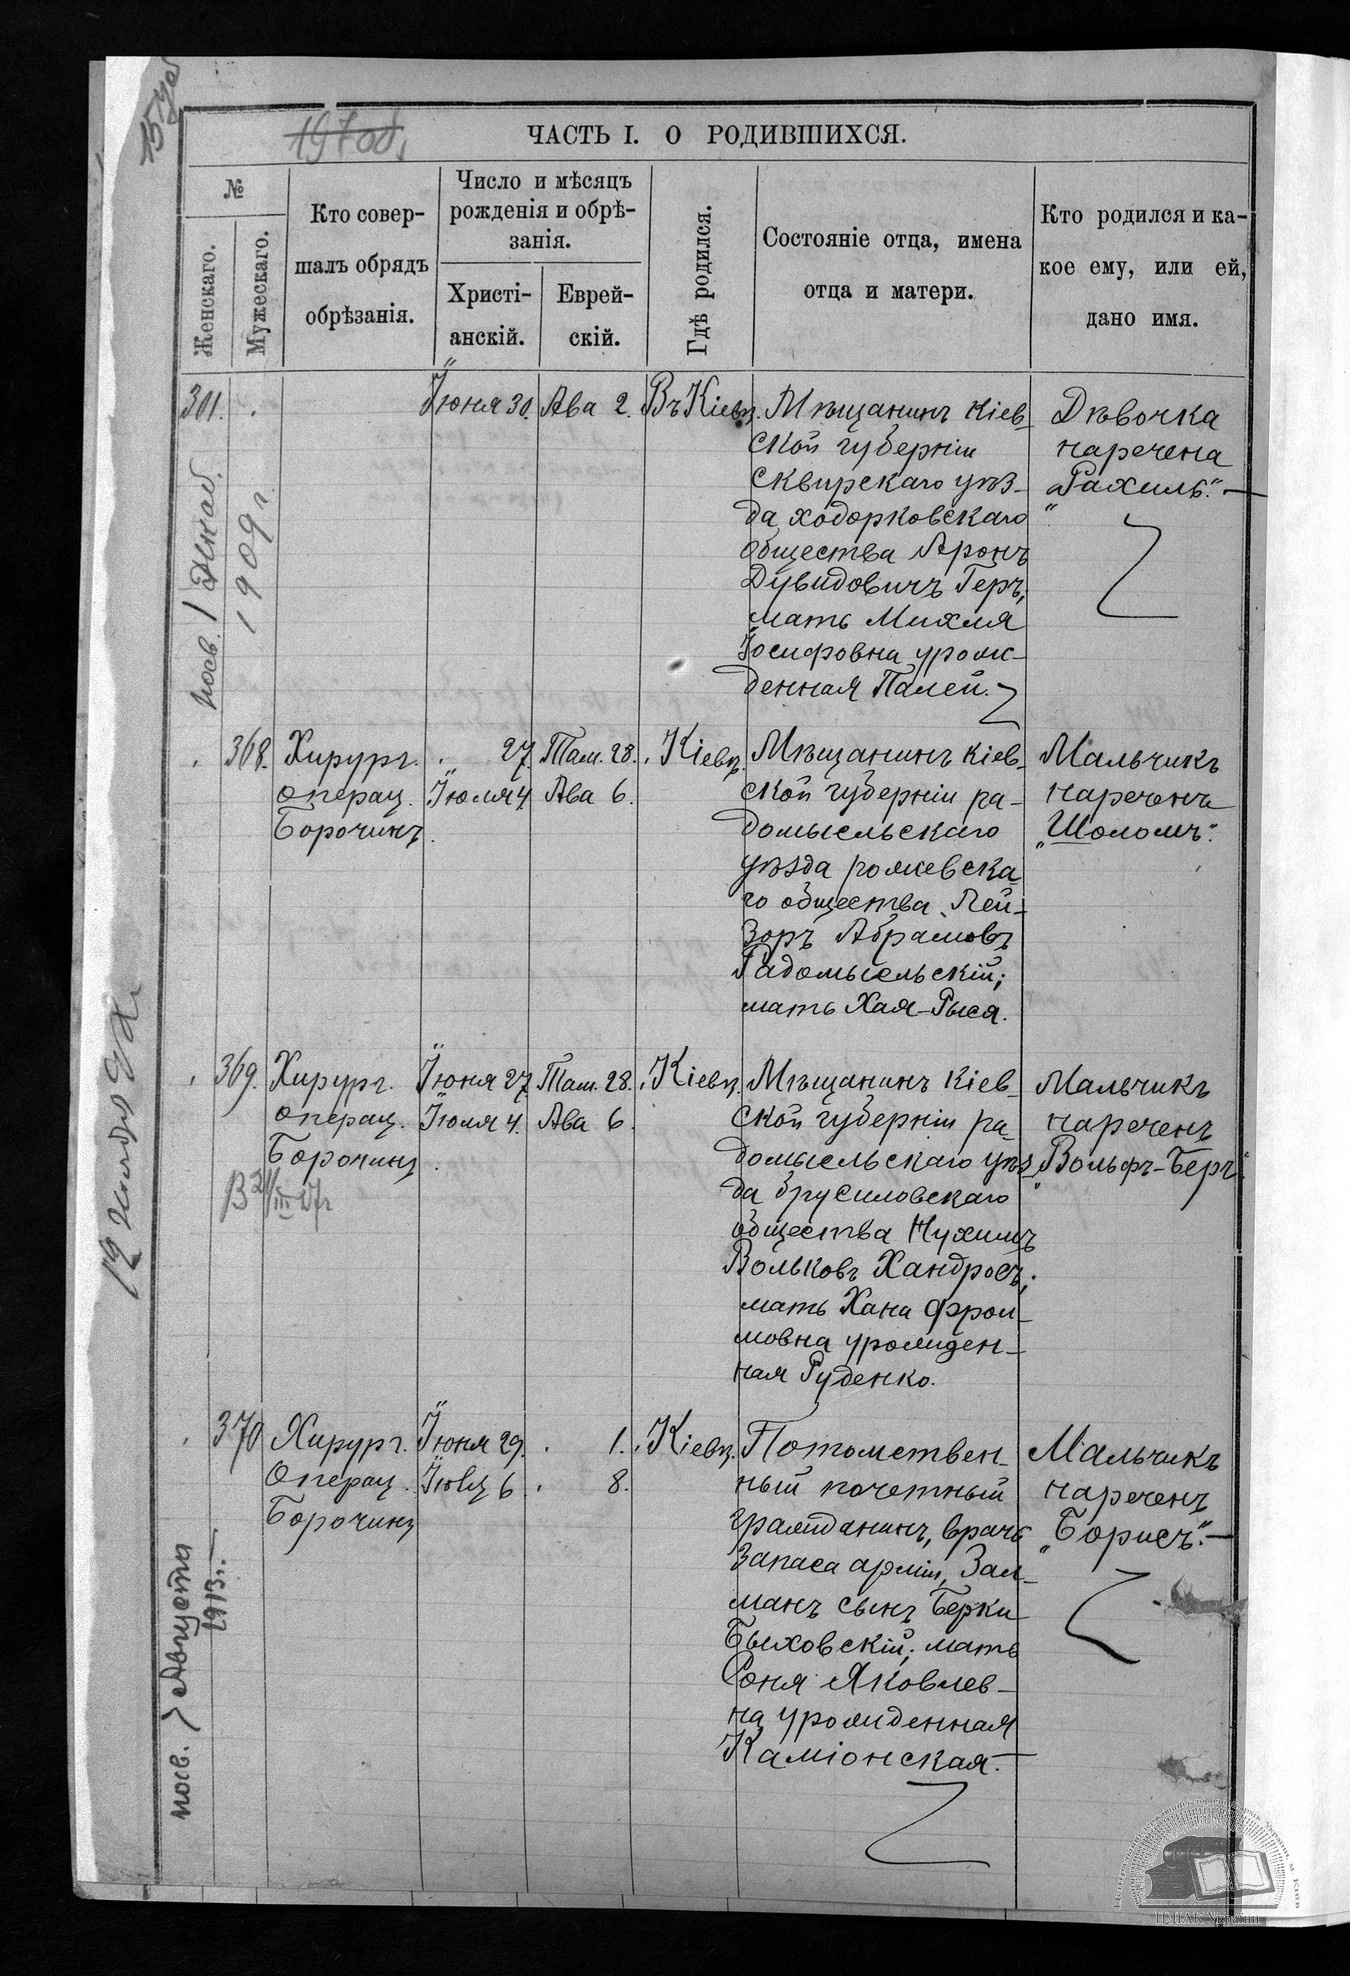 ЧАСТЬ I. О РОДИВШИХСЯ.
№
Женскаго.
Мужескаго.
Кто совер-
шалъ обрядъ
обрѣзанія.
Число и мѣсяцъ
рожденія и обрѣ-
занія.
Христі-
анскій.
Еврей-
скій.
Гдѣ родился.
Состояніе отца, имена
отца и матери.
Кто родился и ка-
кое ему, или ей,
дано имя.
301.
Іюня 30.
Ава 2.
Въ Кіевѣ.
Мѣщанинъ Кіев-
ской губерніи
Сквирскаго уѣз-
да ходорковскаго
общества Аронъ
Дувидовичъ Геръ,
мать Михля
Іосифовна урож-
денная Палей.
Дѣвочка
наречена
„Рахиль“.—
1909 г.
368.
Хирург.
операц.
Борочинъ
27.
Іюля 4
Там. 28.
Ава 6.
Кіевѣ.
Мѣщанинъ Кіев-
ской губерніи ра-
домысльскаго
уѣзда рожевска-
го общества Лей-
зоръ Абрамовъ
Радомысльскій;
мать Хая-Рыся.
Мальчикъ
нареченъ
„Шоломъ“.
369.
Хирург.
операц.
Борочинъ
Іюня 27.
Іюля 4.
Там. 28.
Ава 6.
Кіевѣ.
Мѣщанинъ Кіев-
ской губерніи ра-
домысльскаго уѣз-
да брусиловскаго
общества Нухимъ
Вольковъ Хандросъ;
мать Хана Фрои-
мовна урожден-
ная Руденко.
Мальчикъ
нареченъ
„Вольфъ-Беръ“.
370
Хирург.
Операц.
Борочинъ
Іюня 29.
Іюля 6
1.
8.
Кіевѣ.
Потомствен-
ный почетный
гражданинъ, врачъ
Запаса арміи, Зал-
манъ сынъ Берки
Быховскій; мать
Соня Яковлев-
на урожденная
Каміонская.—
Мальчикъ
нареченъ
„Борисъ“.—
7 Августа
1913.
ЦДІАК України